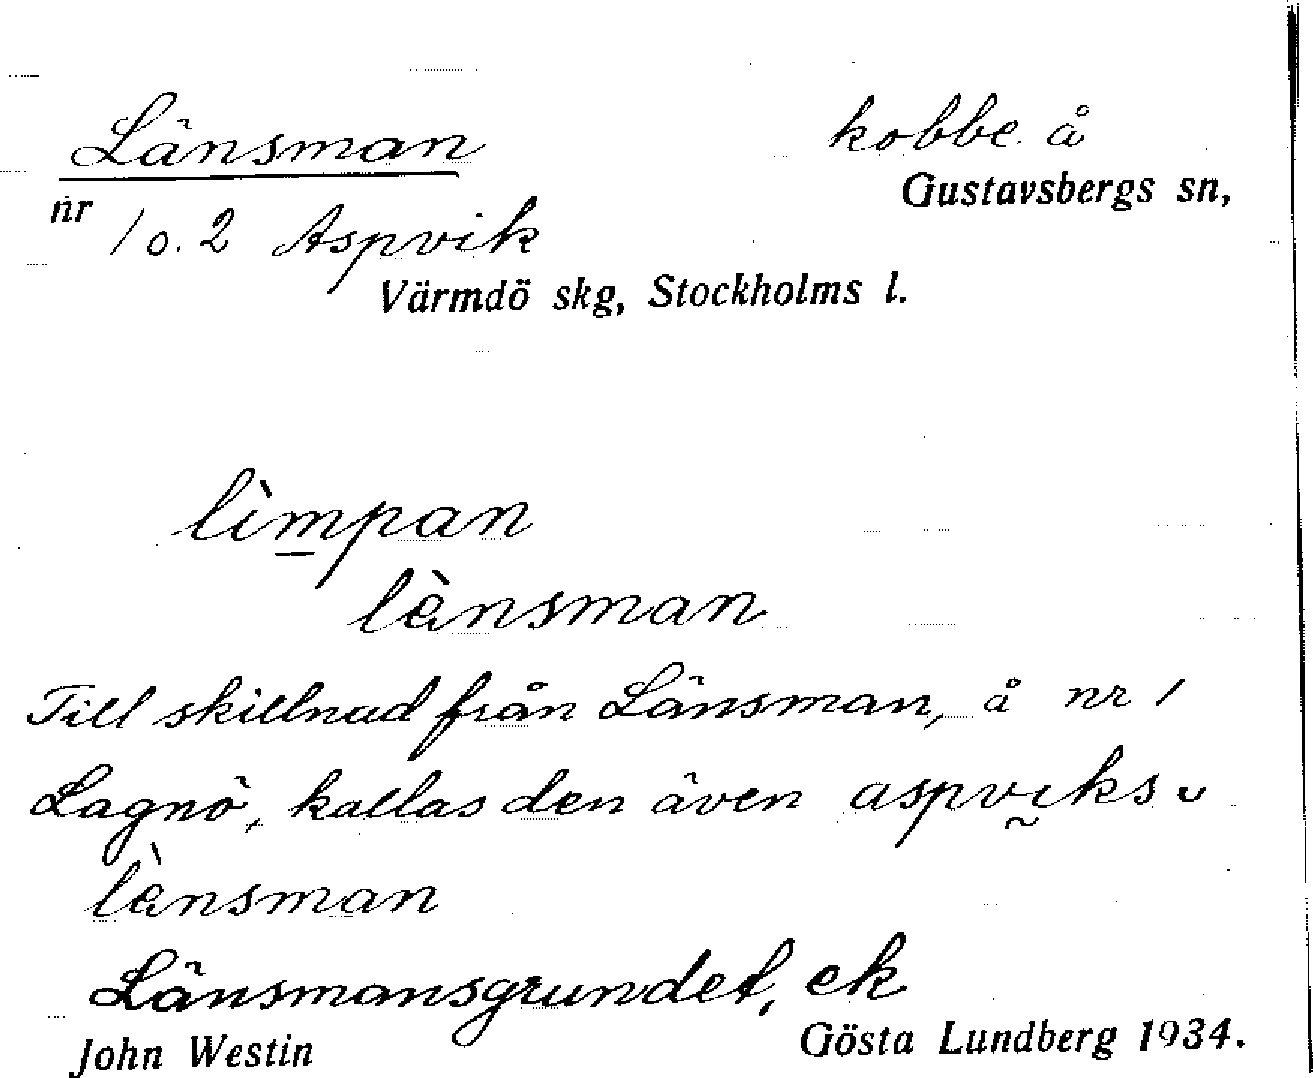 Länsman kobbe å
Gustavsbergs sn,
nr 1 o. 2 Aspvik
Värmdö skg, Stockholms l.
lìmpan
lànsman
Till skillnad från Länsman, å nr 1
Lagnö, kallas den även aspvıks
lànsman
Länsmansgrundet, ek
John Westin Gösta Lundberg 1934.